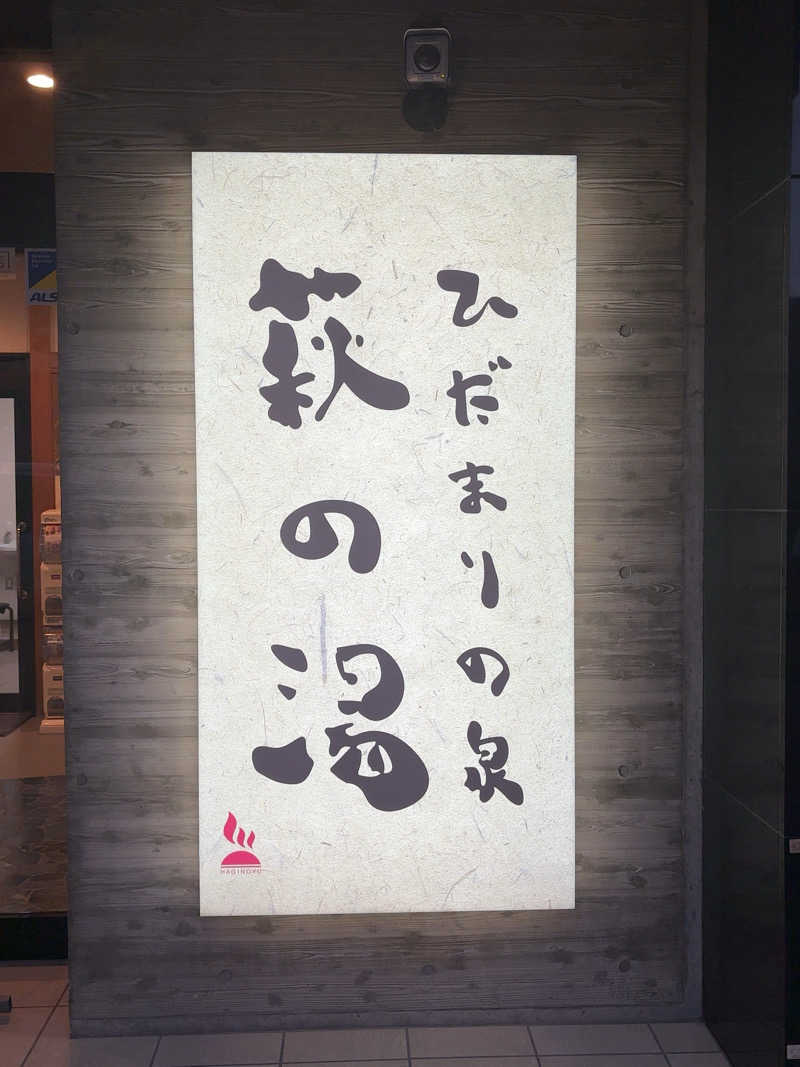 ひだまりの泉
萩の湯
HAGINOYU
ALS